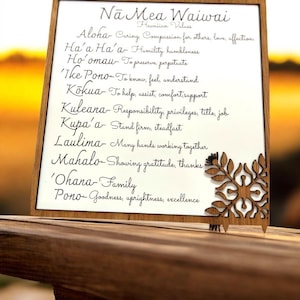 Nā Mea Waiwai
Hawaiian Values
Aloha- Caring, Compassion for others, love, affection
Ha'a Ha'a- Humility, humbleness
Ho'omau- To preserve, perpetuate
'Ike Pono- To know, feel, understand
Kōkua- To help, assist, comfort, support
Kuleana- Responsibility, privileges, title, job
Kupa'a- Stand firm, steadfast
Laulima- Many hands working together
Mahalo- Showing gratitude, thanks
'Ohana- Family
Pono- Goodness, uprightness, excellence